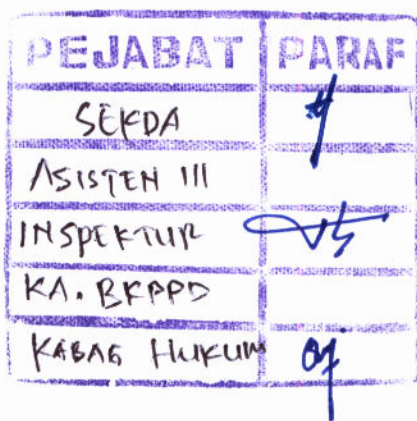 PEJABAT PARAF
SEKDA
ASISTEN III
INSPEKTUR
KA. BKPPD
KABAG HUKUM